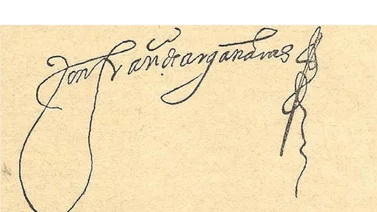 Don Fran.co de arganaras